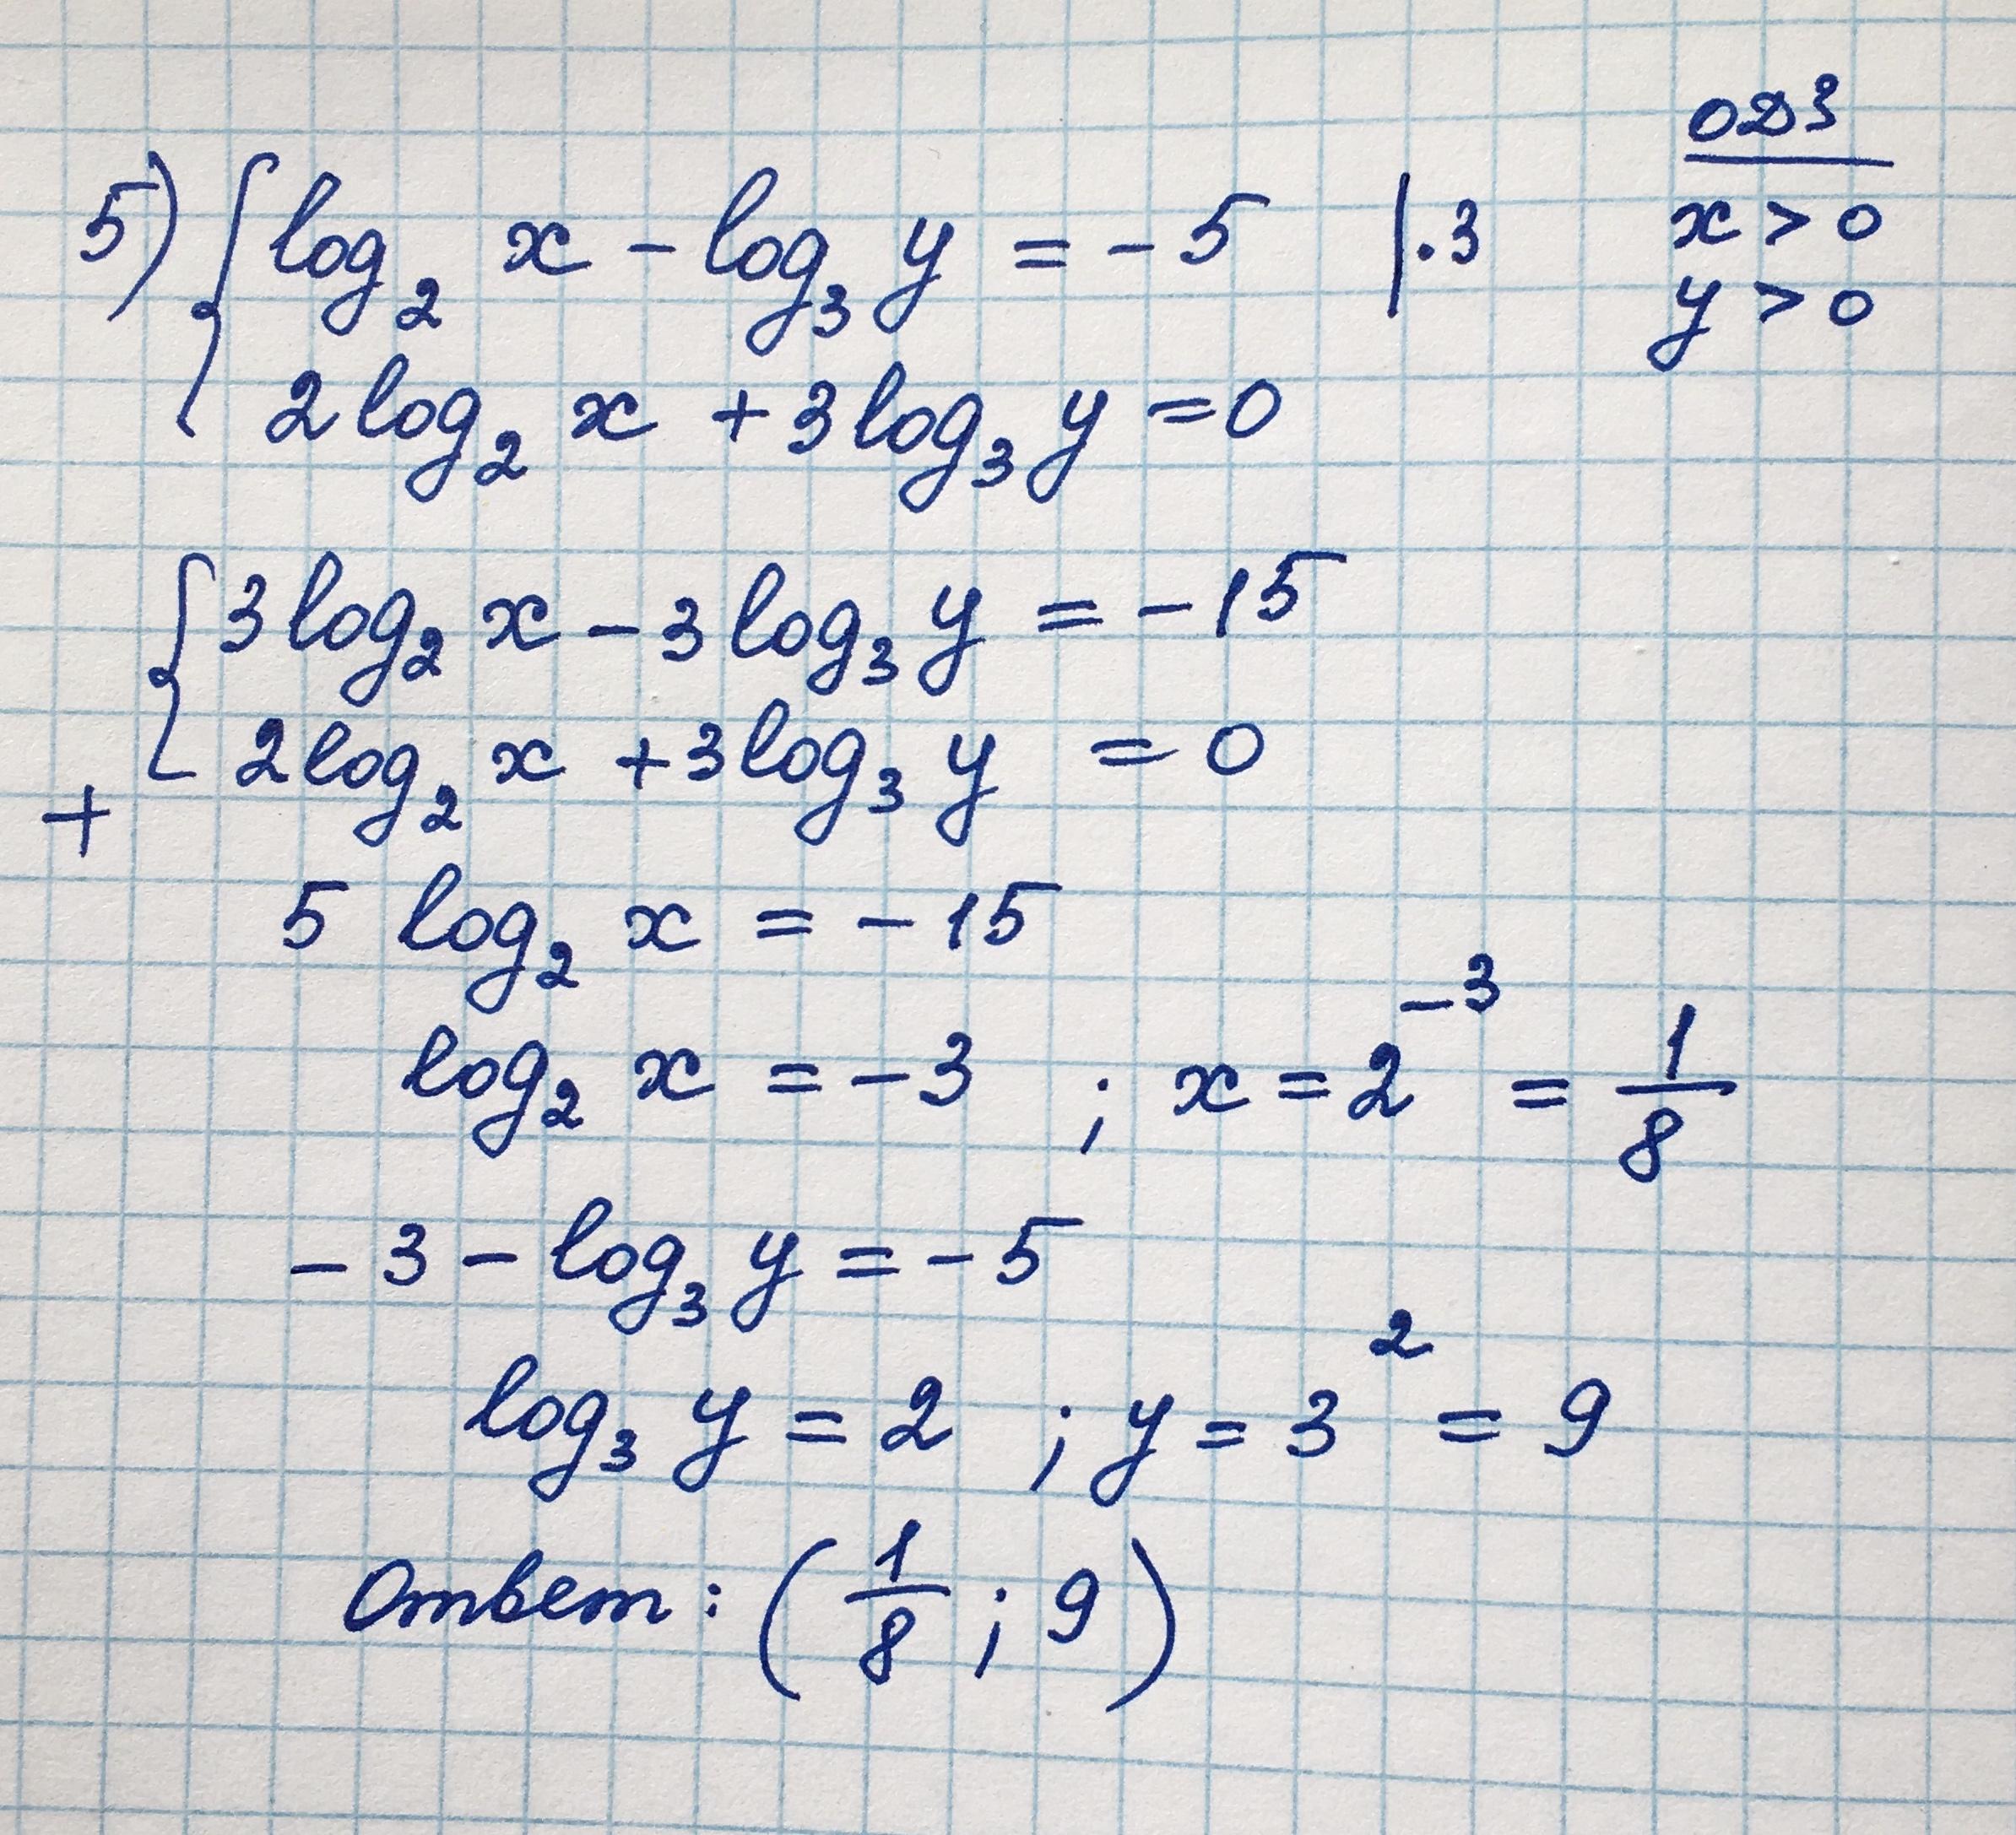 ОДЗ
5) { log₂ x - log₃ y = -5 | · 3 x > 0
y > 0
2 log₂ x + 3 log₃ y = 0
{ 3 log₂ x - 3 log₃ y = -15
2 log₂ x + 3 log₃ y = 0
+
5 log₂ x = -15
log₂ x = -3 ; x = 2⁻³ = 1/8
-3 - log₃ y = -5
log₃ y = 2 ; y = 3² = 9
Ответ: (1/8 ; 9)